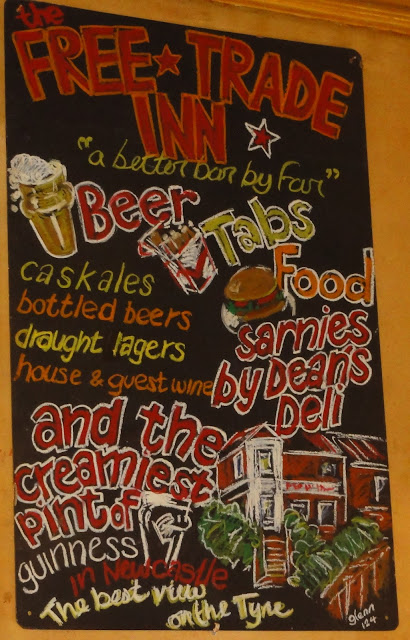 the
FREE ★ TRADE
INN ★
"a better bar by far"
Beer
Tabs
Food
cask ales
bottled beers
draught lagers
house & guest wine
sarnies
by Dean's
Deli
and the
creamiest
pint of
guinness
in Newcastle
The best view
on the Tyne
glenn
124